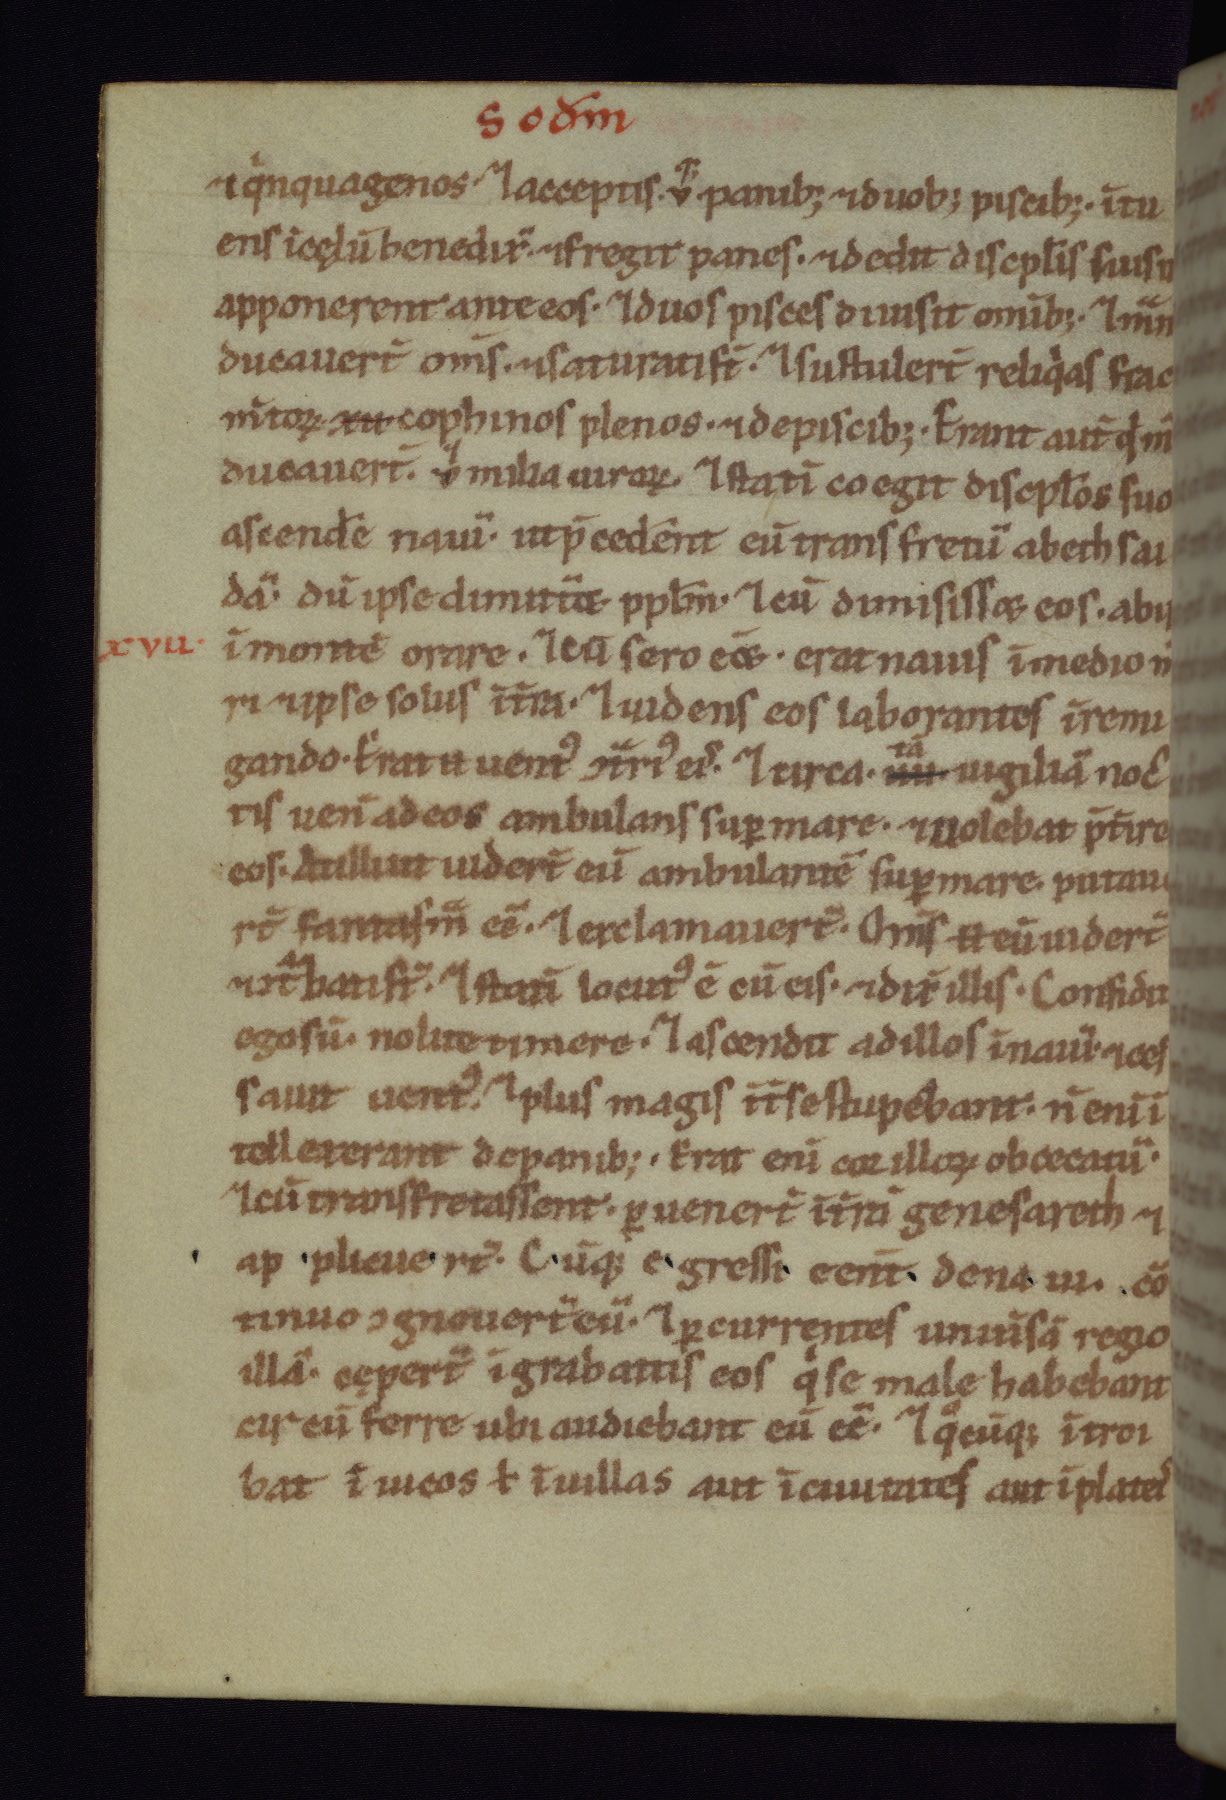 Sodm
⁊ q̇nquagenos. ⁊ acceptis .v. panib; ⁊ duob; piscib;. ītu
ens ī cęlū benedix̄. ⁊ fregit panes. ⁊ dedit discipl̄is suis
apponerent ante eos. ⁊ duos pisces diuisit omīb;. ⁊ mān
ducauert̄ om̄s. ⁊ saturati st̄. ⁊ sustulert̄ reliq̇as frac
m̄toꝝ xii cophinos plenos. ⁊ de piscib;. Erant aut̄ q̇ mā
ducauert̄. v milia uiroꝝ. ⁊ statī coegit discipl̄os suo
ascende̅ nauī. ut p̄cederent eū trans fretū ad bethsai
dā. dū ipse dimittet̄ ppl̄m. ⁊ cū dimisisset eos. abiit
xvii. ī montē orare. ⁊ cū sero eēt. erat nauis ī medio m
ri ⁊ ipse solus ī t̄ra. ⁊ uidens eos laborantes ī remi
gando. Erat u uent⁹ ꝯtri⁹ eis̄. ⁊ circa .iiii.tā uigiliā noc
tis uen̄ ad eos ambulans sup̱ mare. ⁊ uolebat p̄t̄ire
eos. At illi ut uidert̄ eū ambulantē sup̱ mare. putaue
rt̄ fantasm̄ eē̄. ⁊ exclamauert̄. Om̄s u eū uidert̄
⁊ ꝯt̄bati st̄. ⁊ statī locut⁹ ē cū eis. ⁊ dix̄ illis. Confidit
ego sū. nolite timere. ⁊ ascendit ad illos ī nauī ⁊ ces
sauit uent⁹. ⁊ plus magis īt̄ se stupebant. n̄ enī ī
tellexerant de panib;. Erat enī cor illoꝝ obcecatū.
⁊ cū transfretassent. p̱uenert̄ ī t̄rā genesareth ⁊
applicuert̄. Cūq; egressi eent̄ de naui. cō
tinuo ꝯgnouert̄ eū. ⁊ p̱currentes uniuīsā regio
illā. cęp̱ert̄ ī grabattis eos q̇ se male habebant
circū ferre ubi audiebant eū eē̄. ⁊ q̊cūq; ītroi
bat ī uicos ł ī uillas aut ī ciuitates aut ī plateis